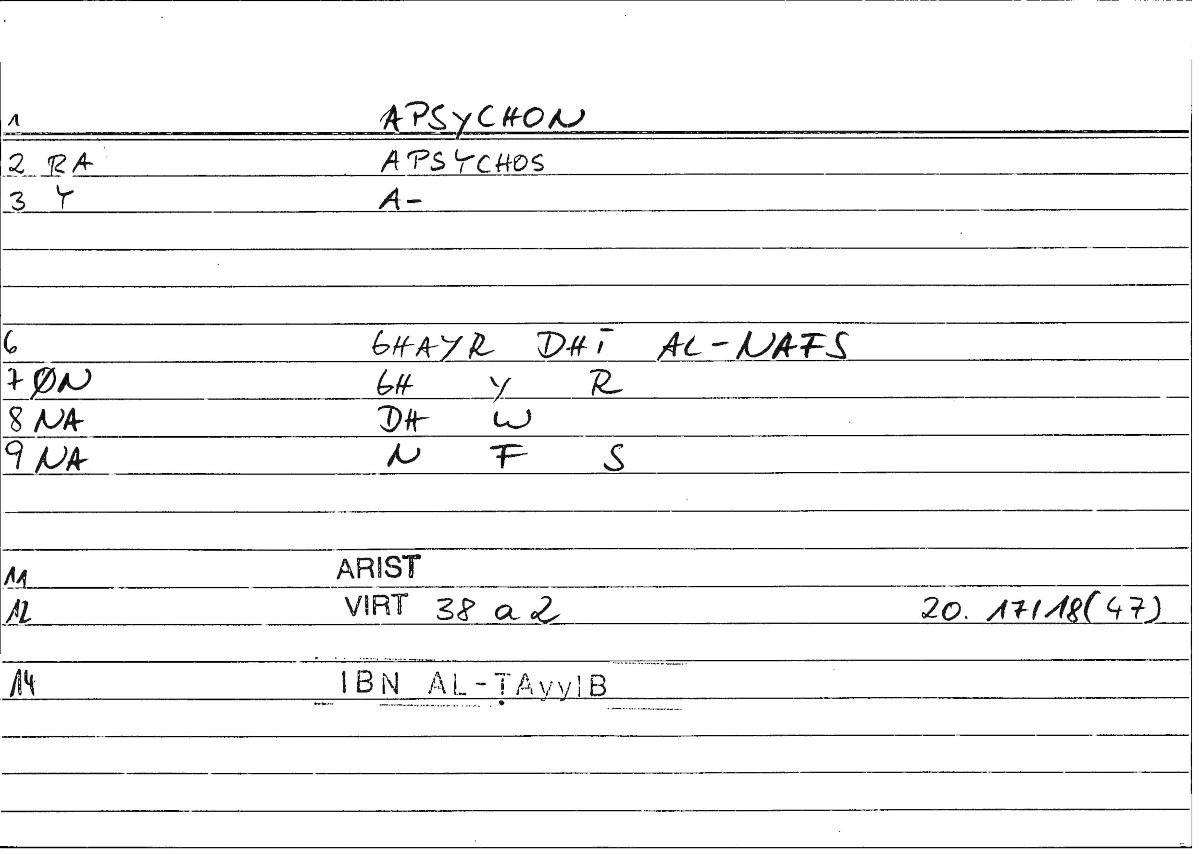 1 APSYCHON
2 RA APSYCHOS
3 Y A-
6 GHAYR DHĪ AL-NAFS
7 ØN GH Y R
8 NA DH W
9 NA N F S
11 ARIST
12 VIRT 38 a 2 20. 17/18(47)
14 IBN AL-ṬAyyIB